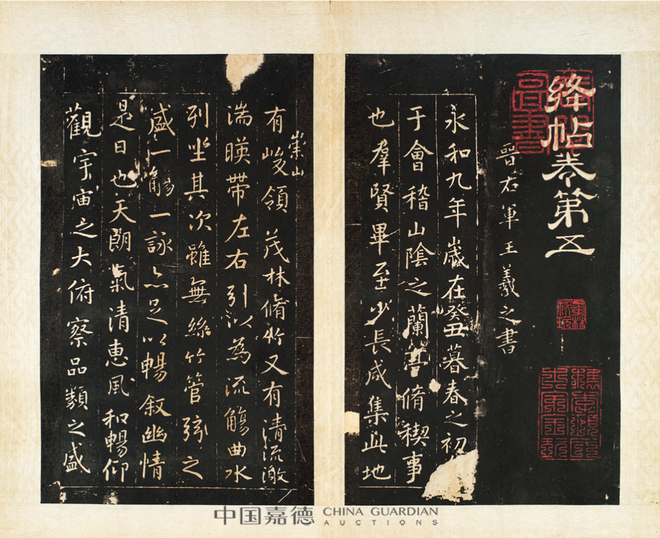 絳帖卷第五
晉右軍王羲之書
永和九年歲在癸丑暮春之初
于會稽山陰之蘭亭脩稧事
也羣賢畢至少長咸集此地
有崇山峻領茂林脩竹又有清流激
湍暎帶左右引以為流觴曲水
列坐其次雖無絲竹管弦之
盛一觴一詠亦足以暢敘幽情
是日也天朗氣清惠風和暢仰
觀宇宙之大俯察品類之盛
中国嘉德 CHINA GUARDIAN
AUCTIONS